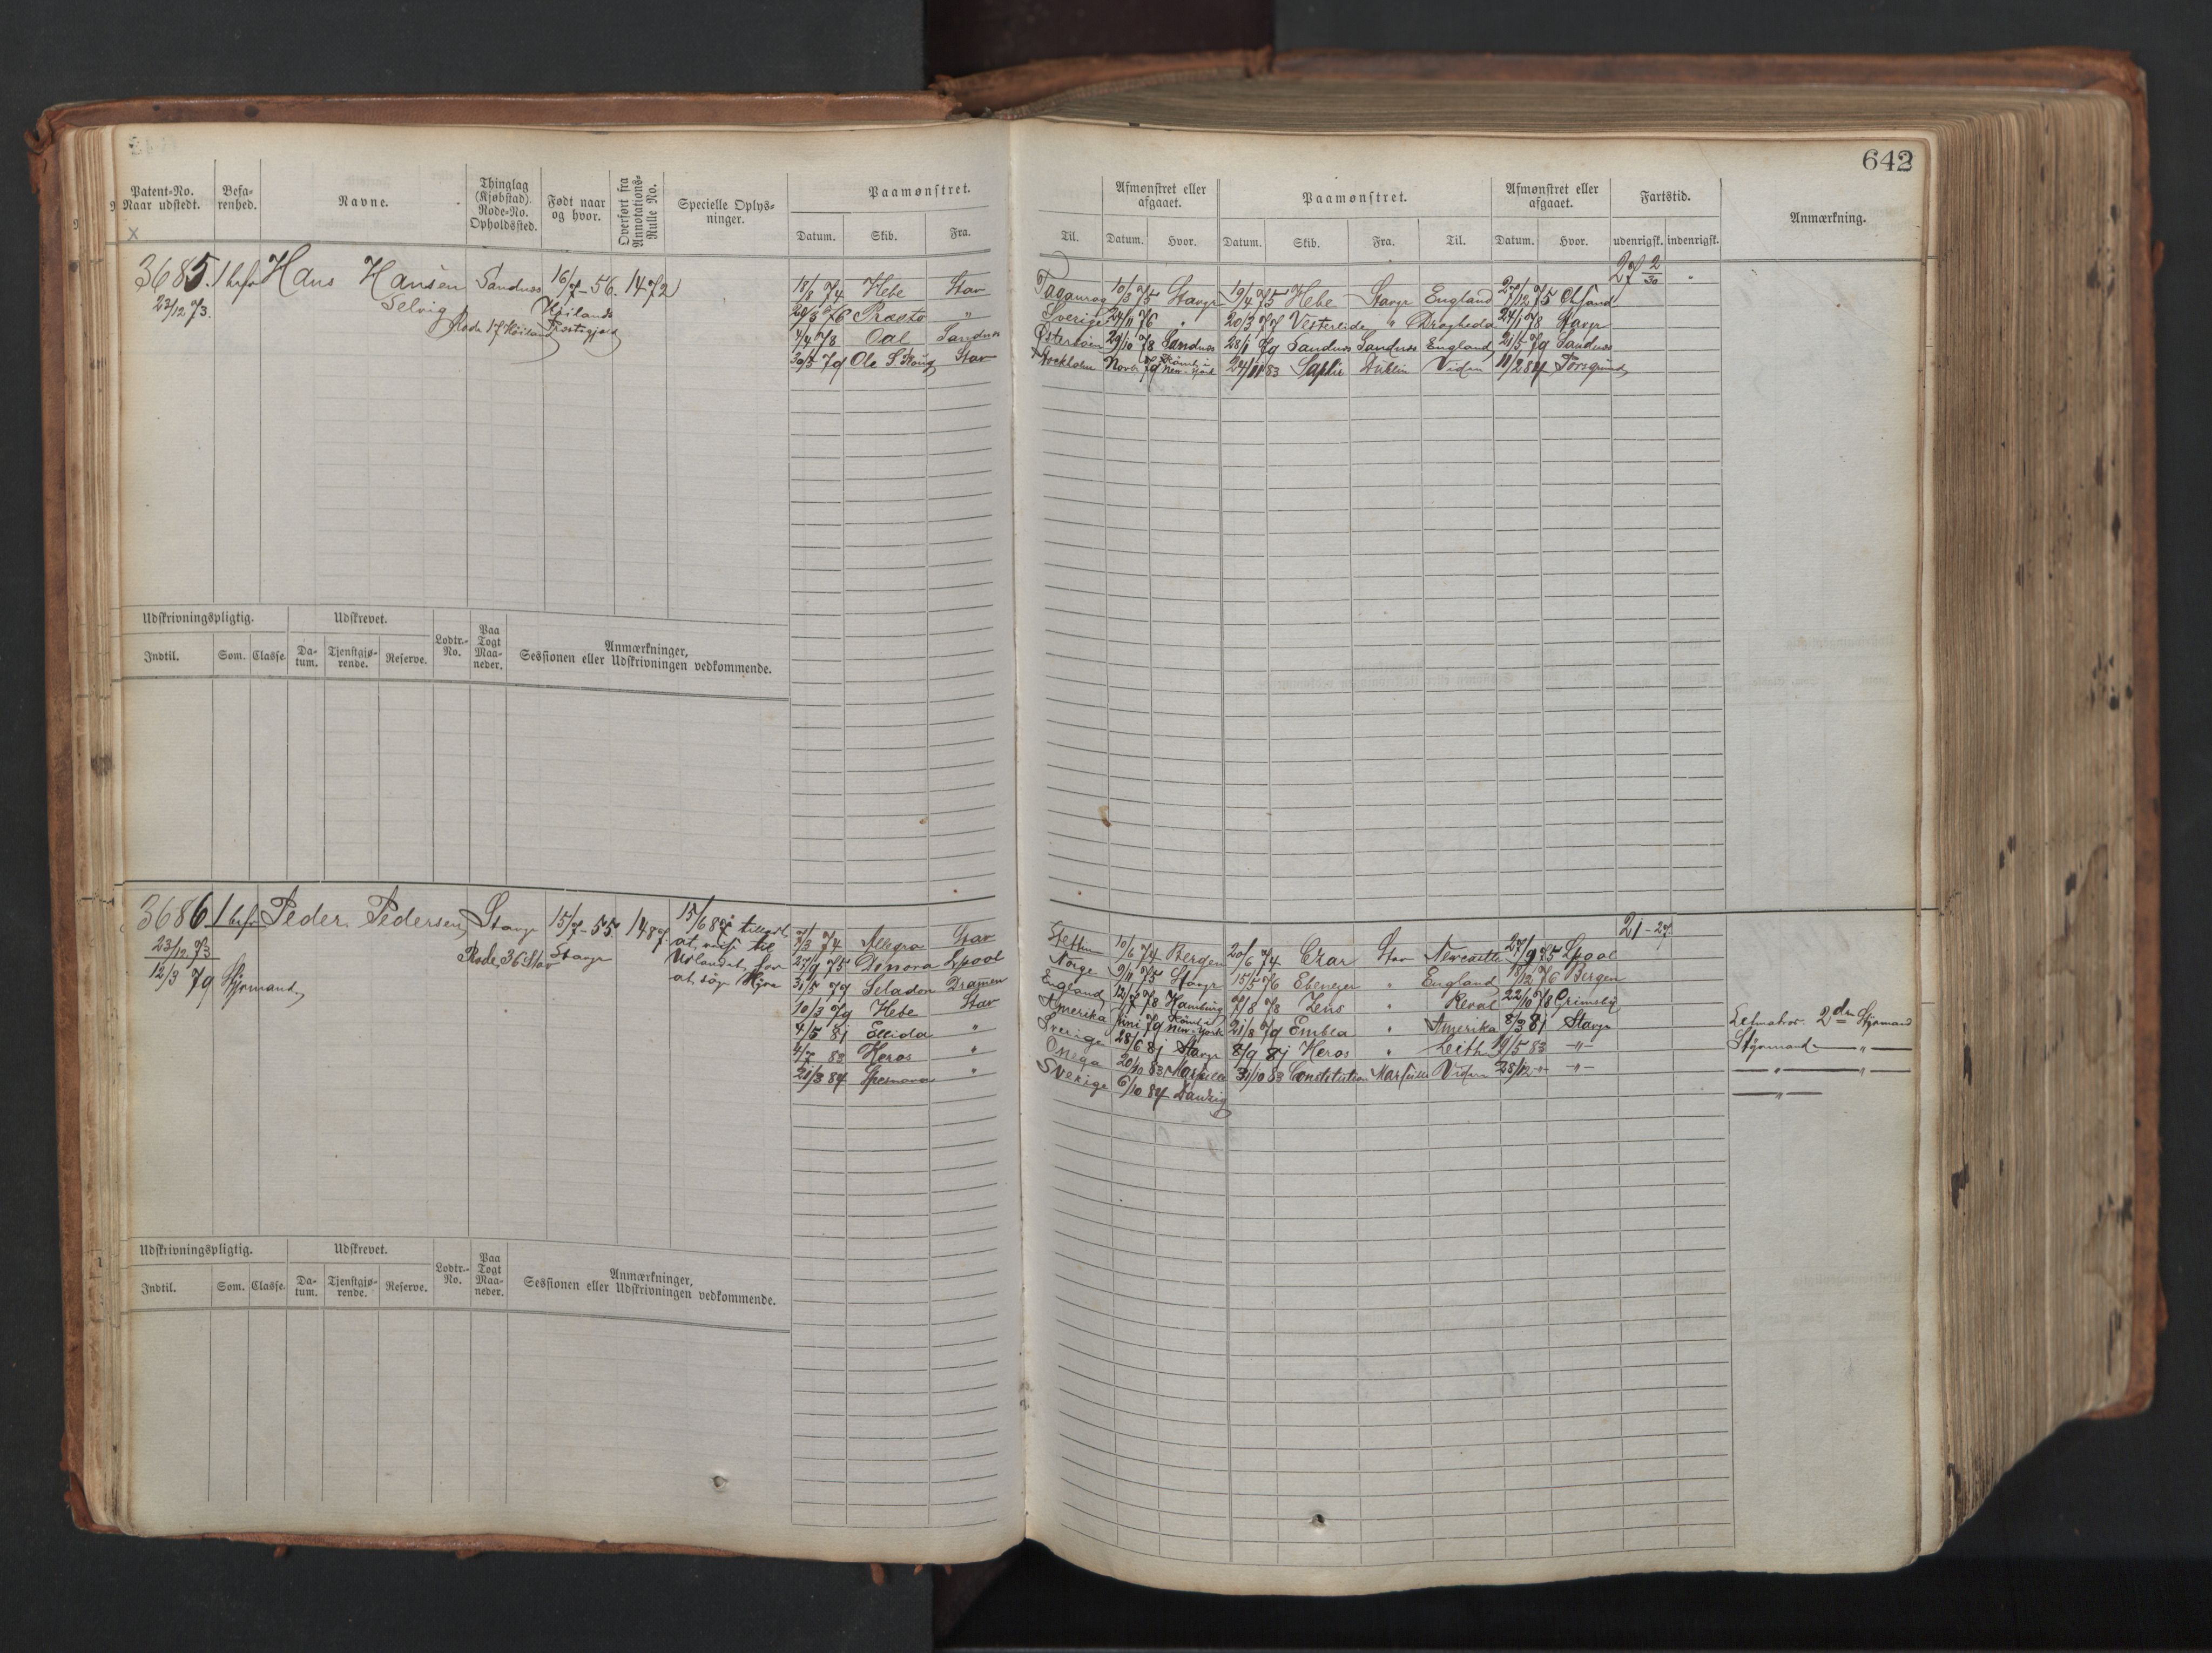 642
Patent-No. Naar udstedt.
Befarenhed.
Navne.
Thinglag (Kjøbstad). Rode-No. Opholdssted.
Født naar og hvor.
Overført fra Annotations-Rulle No.
Specielle Oplysninger.
Paamønstret.
Datum. Skib. Fra.
Til.
Afmønstret eller afgaaet.
Datum. Hvor.
Paamønstret.
Datum. Skib. Fra. Til.
Afmønstret eller afgaaet.
Datum. Hvor.
Fartstid.
udenrigsk. indenrigsk.
Anmærkning.
x
3685. 1 befr Hans Hansen Sandnes 16/7-56. 1472
23/12 73. Selvig Høilands
Rode 17 Høiland Præstegjæld
27 2/30 "
18/8 74 Hebe Stav Taganrog 10/3 75 Stavgr 19/4 75 Hebe Stavgr England 27/12 75 Chrsand
76 " Sverige 24/11 76 " 20/3 77 Vesterlide " Drogheda 24/1 78 Stavgr
4/4 78 Oal Sandnes 29/10 78 Sandnes 28/1 79 Sandnes Sandnes England 21/5 79 Sandnes
30/5 79 Ole Stav Stockholm Novb 79 Rømt i New-York 24/11 83 Saphir Dublin Viden 11/2 84 Porsgrund
Udskrivningspligtig. Udskrevet. Lodtr.-No. Paa Togt Maaneder. Anmærkninger, Sessionen eller Udskrivningen vedkommende.
Indtil. Som. Classe. Datum. Tjenstgjørende. Reserve.
3686 1 befr Peder Pedersen Stavgr 15/7-55. 1487. 15/6 87 tilladt
23/12 73 Rode 36 Stav Stavgr at reise til
12/3 79 Styrmand Udlandet for
at søge Hyre
21-27.
7/3 74 Allegro Stav Stettin 10/6 74 Bergen 20/6 74 Czar Stav Newcastle 27/9 75 Lpool
27/9 75 Dinora Lpool Norge 9/11 75 Stavgr 15/5 76 Ebenezer " England 18/12 76 Bergen
31/5 77 Seladon Dramen England 12/7 78 Hamburg 7/8 78 Zeus " Reval 22/10 78 Grimsby
10/3 79 Hebe Stav Amerika Juni 79 Rømt i New-York 21/8 79 Embla " Amerika 8/3 81 Stavgr
4/5 81 Ellida " Sverige 28/6 81 Stavgr 8/9 81 Heros " Leith 19/5 83 -"-
4/7 83 Heros " Onega 20/10 83 Marseille 31/10 83 Constitution Marseille Viden 28/12 -"- -"-
21/3 84 " Sverige 6/10 84 Danzig
2den Styrmand
Styrmand — " —
— " — — " —
— " —
Udskrivningspligtig. Udskrevet. Lodtr.-No. Paa Togt Maaneder. Anmærkninger, Sessionen eller Udskrivningen vedkommende.
Indtil. Som. Classe. Datum. Tjenstgjørende. Reserve.